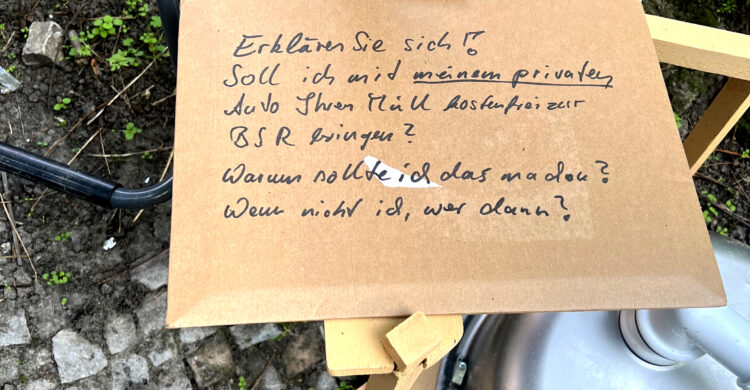 Erklären Sie sich!?
Soll ich mit meinem privaten
Auto Ihren Müll kostenfrei zur
BSR bringen?
Warum sollte ich das machen?
Wenn nicht ich, wer dann?